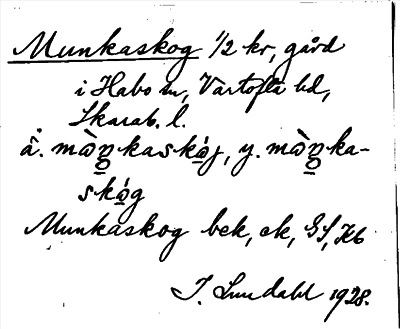 Munkaskog 1/2 kr, gård
i Habo sn, Vartofta hd,
Skarab. l.
å. mò̲ŋkaskó̲j, y. mò̲ŋka-
skó̲g
Munkaskog bek, ek, GS, Hb
I. Lundahl 1928.